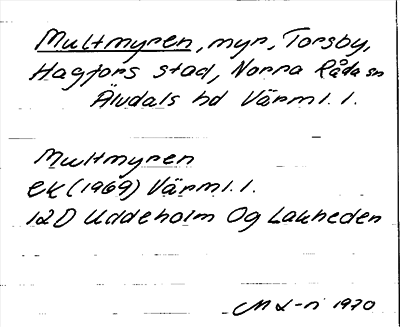 Multmyren, myr, Torsby,
Hagfors stad, Norra Råda sn
Älvdals hd Värml. l.
Multmyren
ek (1969) Värml. l.
12D Uddeholm Og Lakheden
1970